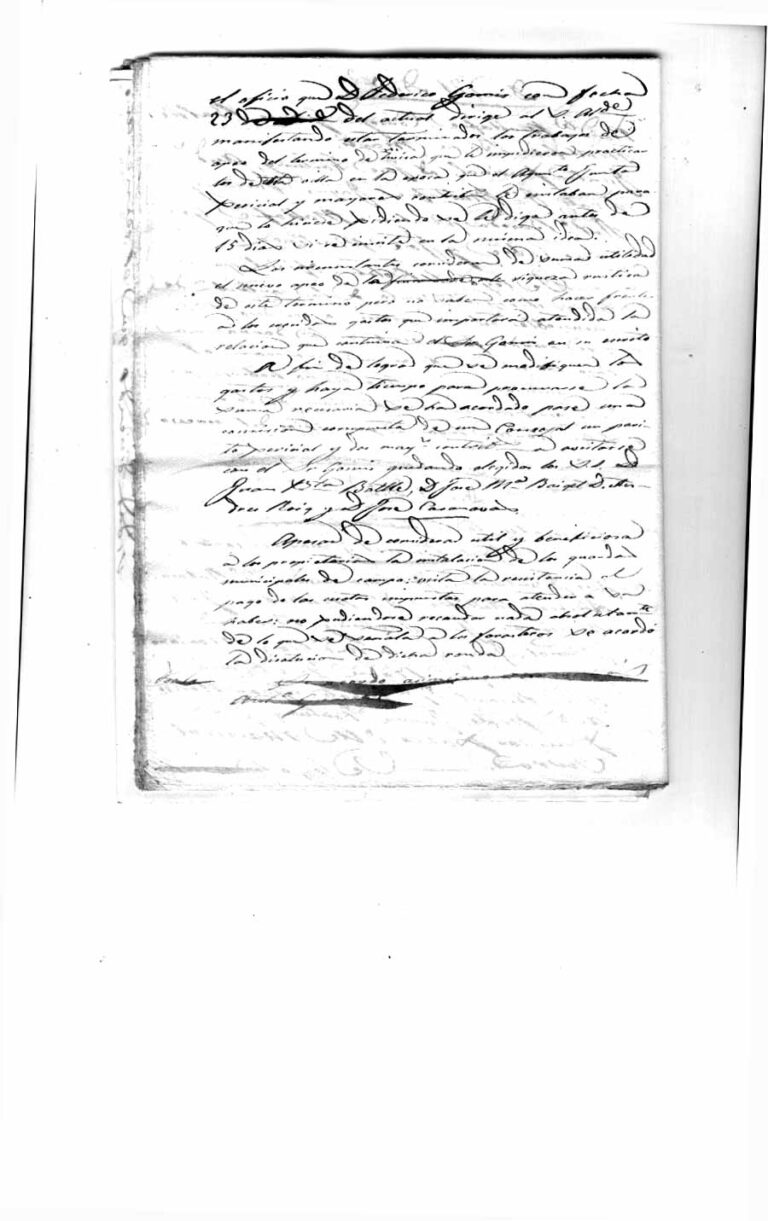 el oficio que D Federico Gomis con fecha
23 del actual dirige al S. Alde
manifestando estar terminados los trabajos de
apeo del termino de que le impidieron practicar
los de esta villa en la epoca que el Aynto Junta
Pericial y mayores contribs le invitaban para
que lo hiciera pidiendo se le diga antes de
15 dias si se insiste en la misma idea.
Los asonantados consideran de suma utilidad
el nuevo apeo de la riqueza rustica
de este termino pero no saben como hacer frente
a los crecidos gastos que importara atendida la
relacion que continua el Sr Gomis en su escrito
A fin de lograr que se modifiquen los
gastos y haya tiempo para procurarse la
suma necesaria se ha acordado pase una
comision compuesta de un Concejal un peri
to pericial y dos mayrs contribs a avistarse
con el Sr Gomis quedando elegidos los S.S. D
Juan Bta Batlle, D Jose Ma D. An
dres Roig y D Jose Casanova
Apesar de considerar util y beneficiosa
a los propietarios la instalacion de los guardas
municipales de campo; vista la resistencia al
pago de las cuotas impuestas para atender a su
haber; no pudiendose recaudar nada absolutante
de lo que se señala a los forasteros se acordó
la disolucion de dicha ronda